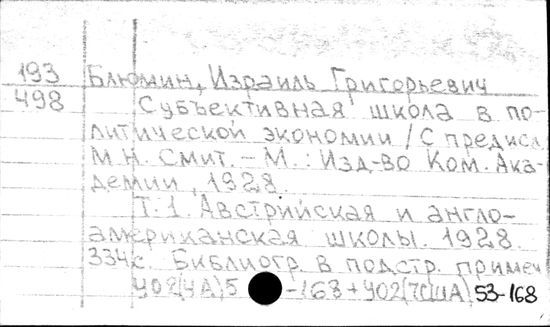 193 Блюмин, Израиль Григорьевич
498 Субъективная школа в по-
литической экономии / С предисл.
М.Н. Смит. – М.: Изд-во Ком. Ака-
демии, 1928.
Т.1. Австрийская и англо-
американская школы. 1928.
334с. Библиогр. в подстр. примеч
У02(4А)5 -163 + У02(7США) 53-168